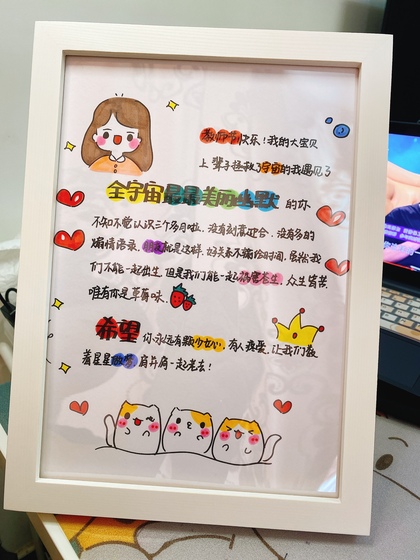 教师节快乐！我的大宝贝
上辈子拯救了宇宙的我遇见了
全宇宙最最美丽幽默的你
不知不觉认识三个多月啦，没有刻意迎合，没有多的
煽情语录，朋友就是这样，好关系不输给时间，虽然我
们不能一起出生，但是我们能一起祸害苍生，众生皆苦
唯有你是草莓味
希望你永远有颗少女心，有人疼爱，让我们数
着星星做梦，肩并肩一起老去！